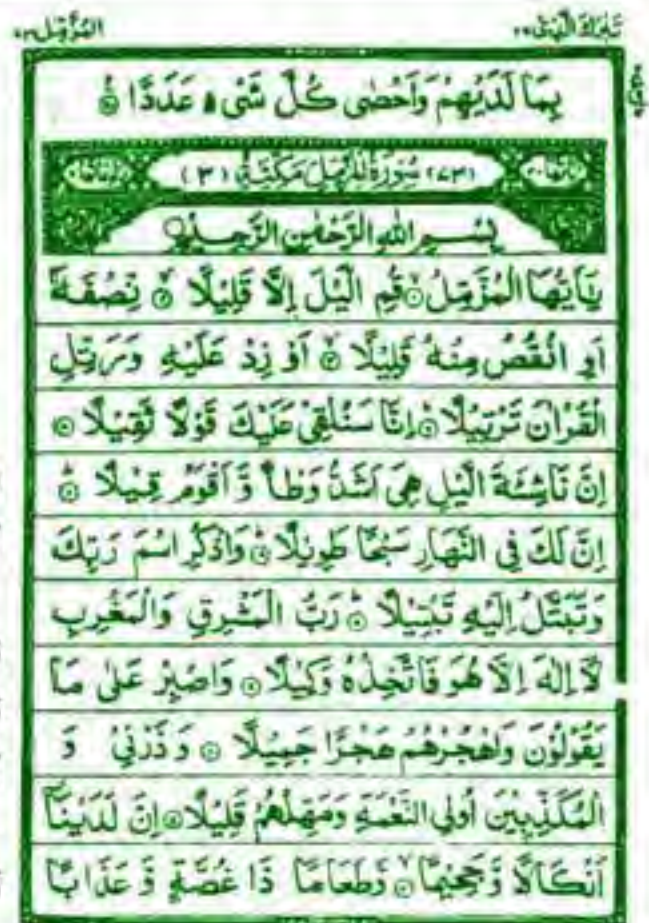 تَبٰرَكَ الَّذِىْ ٢٩
الْمُزَّمِّل ٧٣
بِمَا لَدَيْهِمْ وَاَحْصٰى كُلَّ شَىْءٍ عَدَدًا ۟
(٧٣) سُوْرَةُ الْمُزَّمِّلِ مَكِّيَّةٌ (٣)
بِسْمِ اللهِ الرَّحْمٰنِ الرَّحِيْمِ
يٰۤاَيُّهَا الْمُزَّمِّلُ ۙ قُمِ الَّيْلَ اِلَّا قَلِيْلًا ۙ نِّصْفَهٗۤ
اَوِ انْقُصْ مِنْهُ قَلِيْلًا ۙ اَوْ زِدْ عَلَيْهِ وَرَتِّلِ
الْقُرْاٰنَ تَرْتِيْلًا ؕ اِنَّا سَنُلْقِىْ عَلَيْكَ قَوْلًا ثَقِيْلًا ۟
اِنَّ نَاشِئَةَ الَّيْلِ هِىَ اَشَدُّ وَطْاً وَّاَقْوَمُ قِيْلًا ؕ
اِنَّ لَكَ فِى النَّهَارِ سَبْحًا طَوِيْلًا ؕ وَاذْكُرِ اسْمَ رَبِّكَ
وَتَبَتَّلْ اِلَيْهِ تَبْتِيْلًا ؕ رَبُّ الْمَشْرِقِ وَالْمَغْرِبِ
لَاۤ اِلٰهَ اِلَّا هُوَ فَاتَّخِذْهُ وَكِيْلًا ۟ وَاصْبِرْ عَلٰى مَا
يَقُوْلُوْنَ وَاهْجُرْهُمْ هَجْرًا جَمِيْلًا ۟ وَذَرْنِىْ وَ
الْمُكَذِّبِيْنَ اُولِى النَّعْمَةِ وَمَهِّلْهُمْ قَلِيْلًا ۟ اِنَّ لَدَيْنَاۤ
اَنْكَالًا وَّجَحِيْمًا ۙ وَّطَعَامًا ذَا غُصَّةٍ وَّعَذَابًا